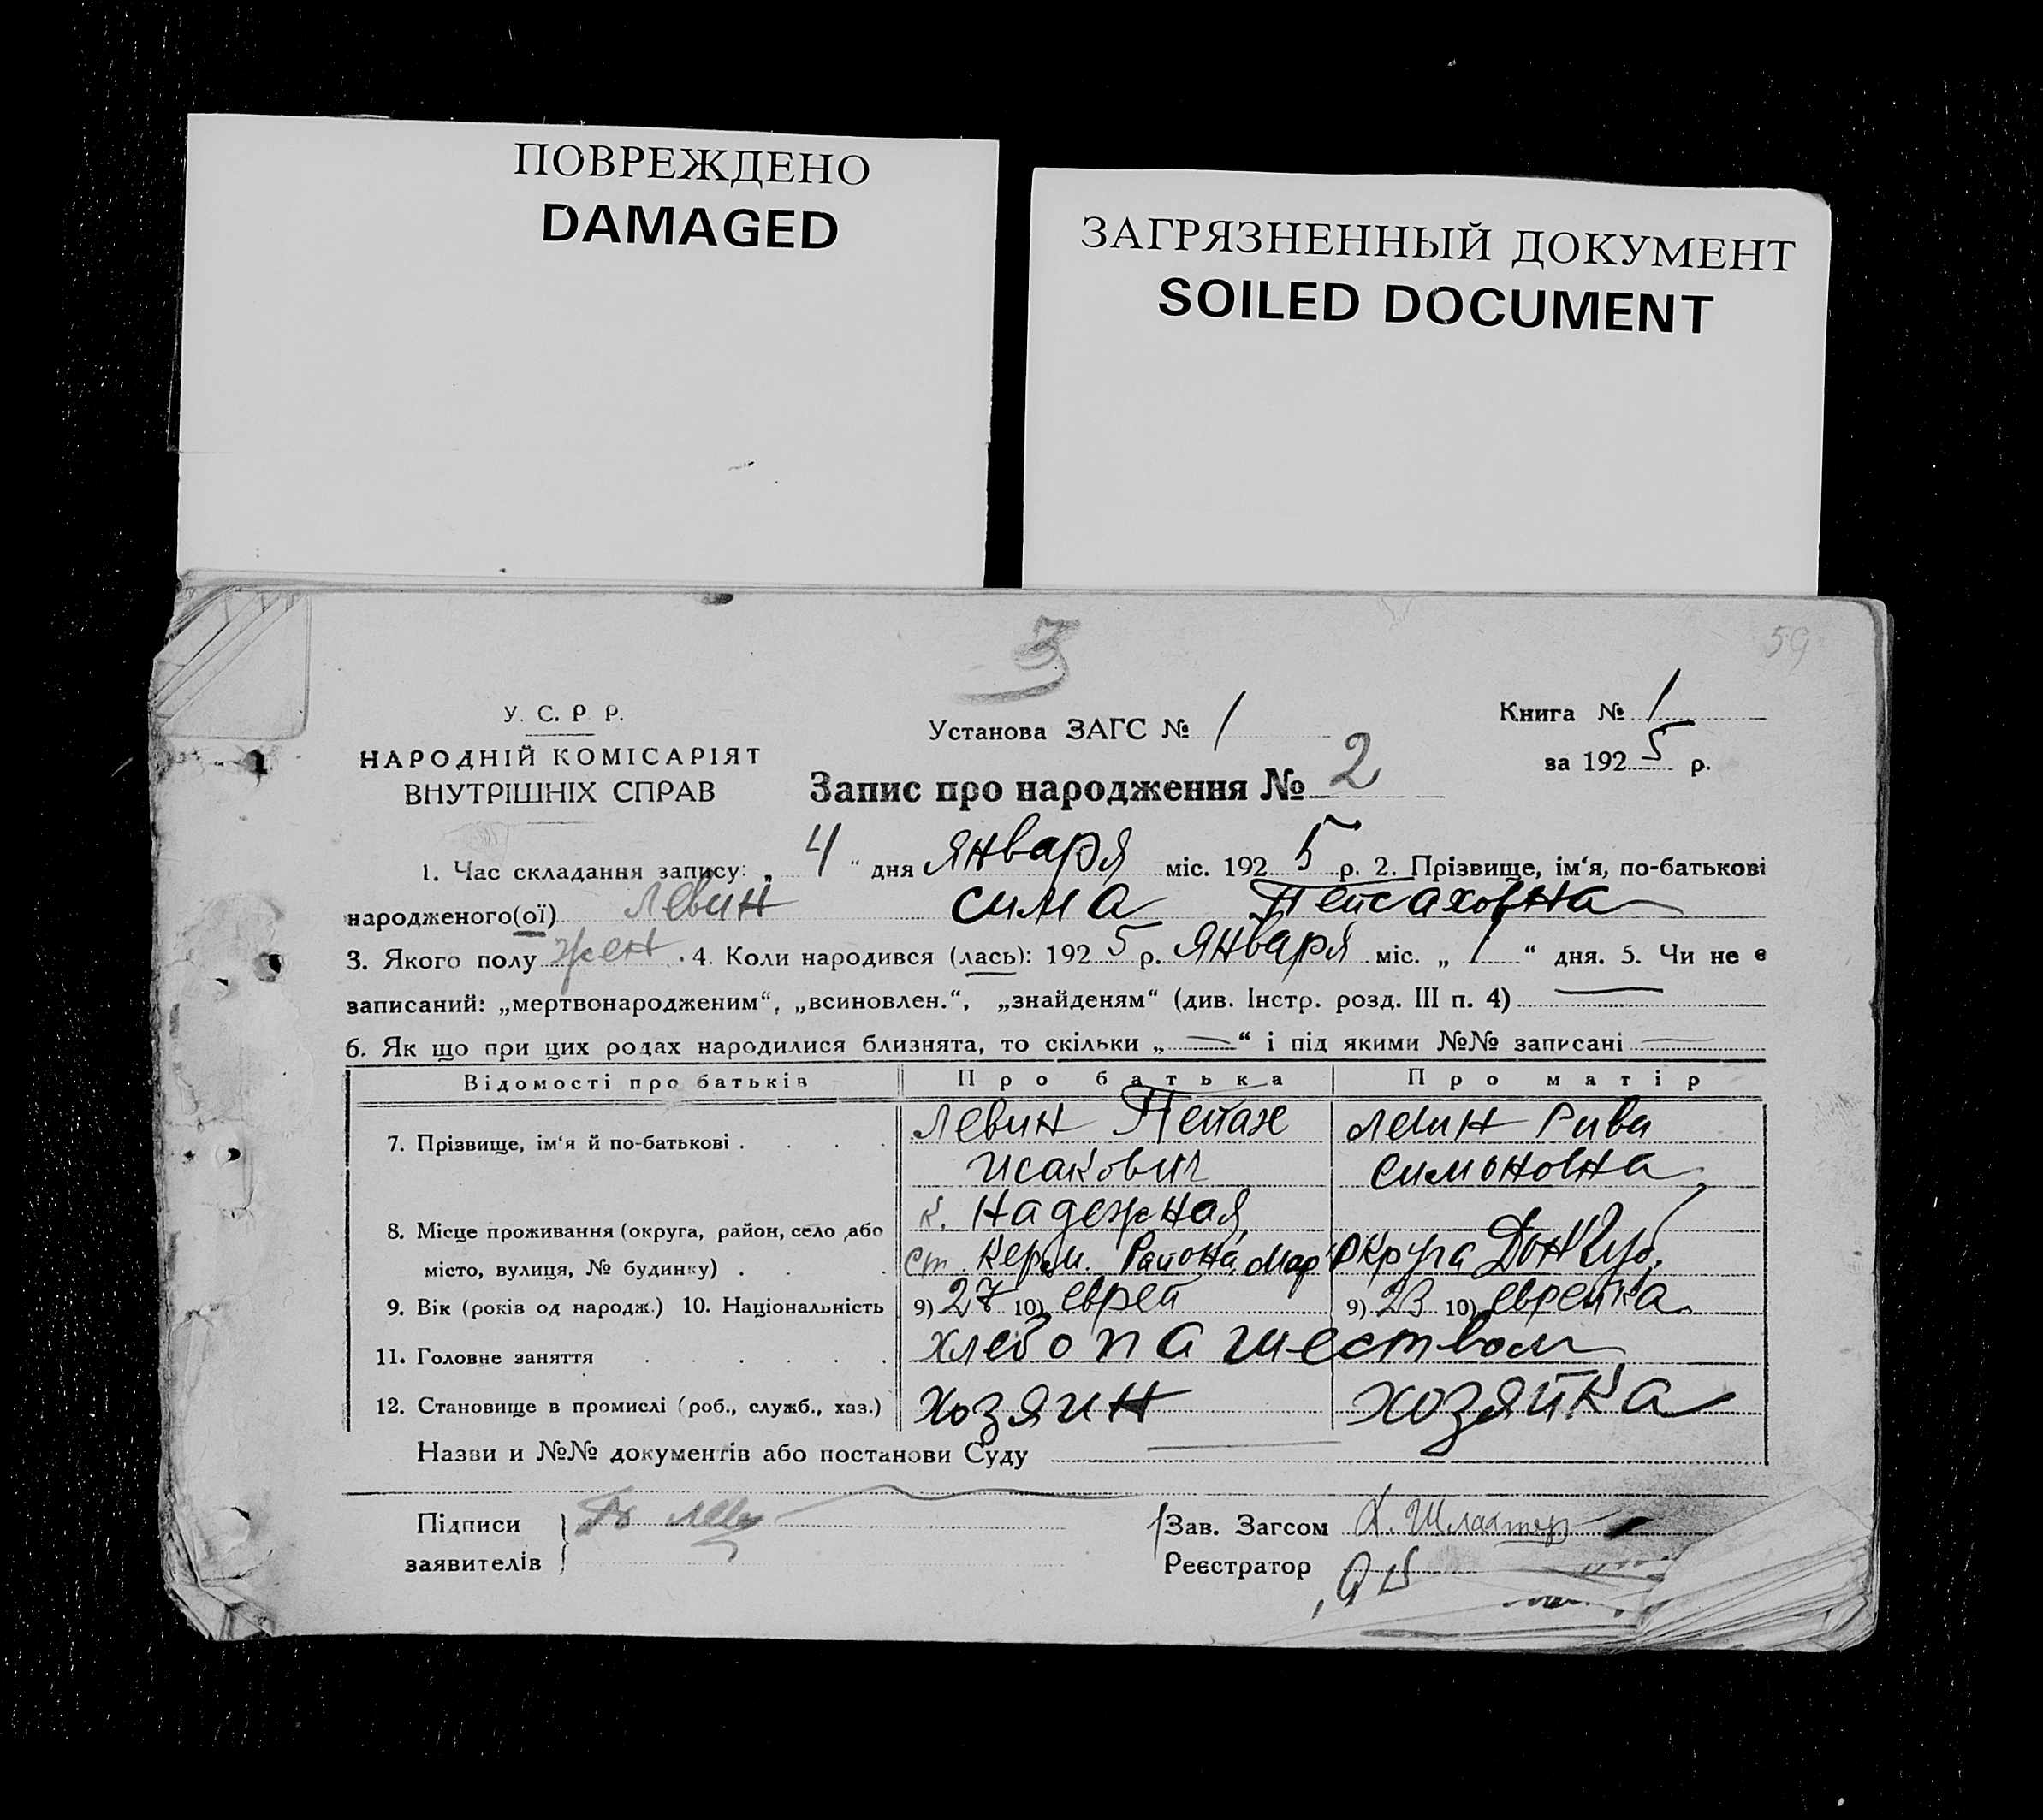 ПОВРЕЖДЕНО
DAMAGED
ЗАГРЯЗНЕННЫЙ ДОКУМЕНТ
SOILED DOCUMENT
3
59
У. С. Р. Р.
НАРОДНІЙ КОМІСАРІЯТ
ВНУТРІШНІХ СПРАВ
Установа ЗАГС № 1
Книга № 1
за 1925 р.
Запис про народження № 2
1. Час складання запису: „ 4 “ дня января міс. 1925 р. 2. Прізвище, ім‘я, по-батькові
народженого(ої) Левин Сима Пейсаховна
3. Якого полу жен. 4. Коли народився (лась): 1925 р. Января міс. „ 1 “ дня. 5. Чи не є
записаний: „мертвонародженим“, „всиновлен.“, „знайденям“ (див. Інстр. розд. III п. 4) —
6. Як що при цих родах народилися близнята, то скільки „ — “ і під якими №№ записані —
Відомості про батьків Про батька Про матір
7. Прізвище, ім‘я й по-батькові . . . . Левин Пейсах Левин Рива
Исакович Симоновна
8. Місце проживання (округа, район, село або к. Надежная
місто, вулиця, № будинку) . . . ст. Керм. Района Мар. Округа Дон Губ.
9. Вік (років од народж.) 10. Національність 9) 27 10) еврей 9) 23 10) еврейка
11. Головне заняття . . . . . . хлебопашеством
12. Становище в промислі (роб., служб., хаз.) Хозяин Хозяйка
Назви и №№ документів або постанови Суду —
Підписи
заявителів
Зав. Загсом Шлахтер
Реєстратор